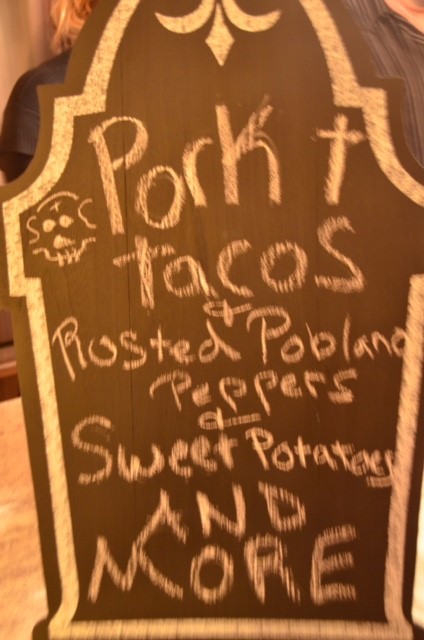 Pork
Tacos
&
Rosted Poblano
Peppers
&
Sweet Potatoes
AND
MORE